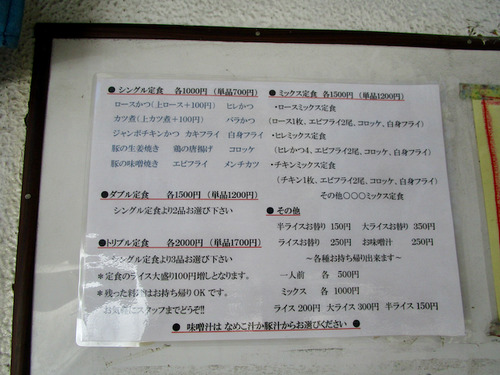 ● シングル定食 各1000円 (単品700円)
ロースかつ(上ロース+100円) ヒレかつ
カツ煮(上カツ煮+100円) バラかつ
ジャンボチキンかつ カキフライ 白身フライ
豚の生姜焼き 鶏の唐揚げ コロッケ
豚の味噌焼き エビフライ メンチカツ
● ダブル定食 各1500円 (単品1200円)
シングル定食より2品お選び下さい
●トリプル定食 各2000円 (単品1700円)
シングル定食より3品お選び下さい
*定食のライス大盛り100円増しとなります。
*残った料理はお持ち帰りOKです。
お気軽にスタッフまでどうぞ!!
● ミックス定食 各1500円 (単品1200円)
・ロースミックス定食
(ロース1枚、エビフライ2尾、コロッケ、白身フライ)
・ヒレミックス定食
(ヒレかつ4、エビフライ2尾、コロッケ、白身フライ)
・チキンミックス定食
(チキン1枚、エビフライ2尾、コロッケ、白身フライ)
その他○○○ミックス定食
● その他
半ライスお替り 150円 大ライスお替り 350円
ライスお替り 250円 お味噌汁 250円
~各種お持ち帰り出来ます~
一人前 各 500円
ミックス 各 1000円
ライス 200円 大ライス 300円 半ライス 150円
● 味噌汁は なめこ汁か豚汁からお選びください ●